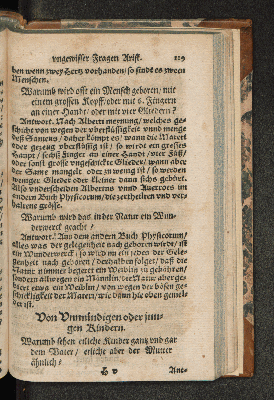 vngewisser Fragen Arist. 119
ben wenn zwey Hertz vorhanden/ so sindt es zween
Menschen.
Warumb wird offt ein Mensch geboren/ mit
einem grossen Kopff/ oder mit 6. Fingern
an einer Handt/ oder mit vier Gliedern?
Antwort. Nach Alberti meynung/ welches ge-
schicht von wegen der vberflüssigkeit vnd menge
deß Samens/ daher kömpt es/ wann die Materi
oder gezeug vberflüssig ist/ so wird ein grosses
Haupt/ sechs Finger an einer Handt/ vier Füß/
oder sonst grosse vngeschickte Glieder/ wenn aber
der Same mangelt oder zu wenig ist/ so werden
weniger Glieder oder kleiner dann sichs gehört.
Also vnderscheiden Albertus vnnd Auerroes im
andern Buch Physicorum/ die zertheilten vnd ver-
lohrene grösse.
Warumb wird das in der Natur ein Wun-
derwerck geacht?
Antwort. Auß dem andern Buch Physicorum/
Alles was der gelegenheit nach geboren wirdt/ ist
ein Wunderwerck/ so wird nu ein jedes der Gele-
genheit nach geboren/ derhalben folget/ daß die
Natur nimmer begeret ein Weiblin zu gebähren/
sondern allwegen ein Männlin: die Natur aber ge-
biert etwa ein Weiblin/ von wegen der bösen ge-
schickligkeit der Matery/ wie dann hie oben gemel-
det ist.
Von Vnmündigen oder jun-
gen Kindern.
Warumb sehen etliche Kinder gantz vnd gar
dem Vater/ etliche aber der Mutter
ähnlich?
H v Ant-